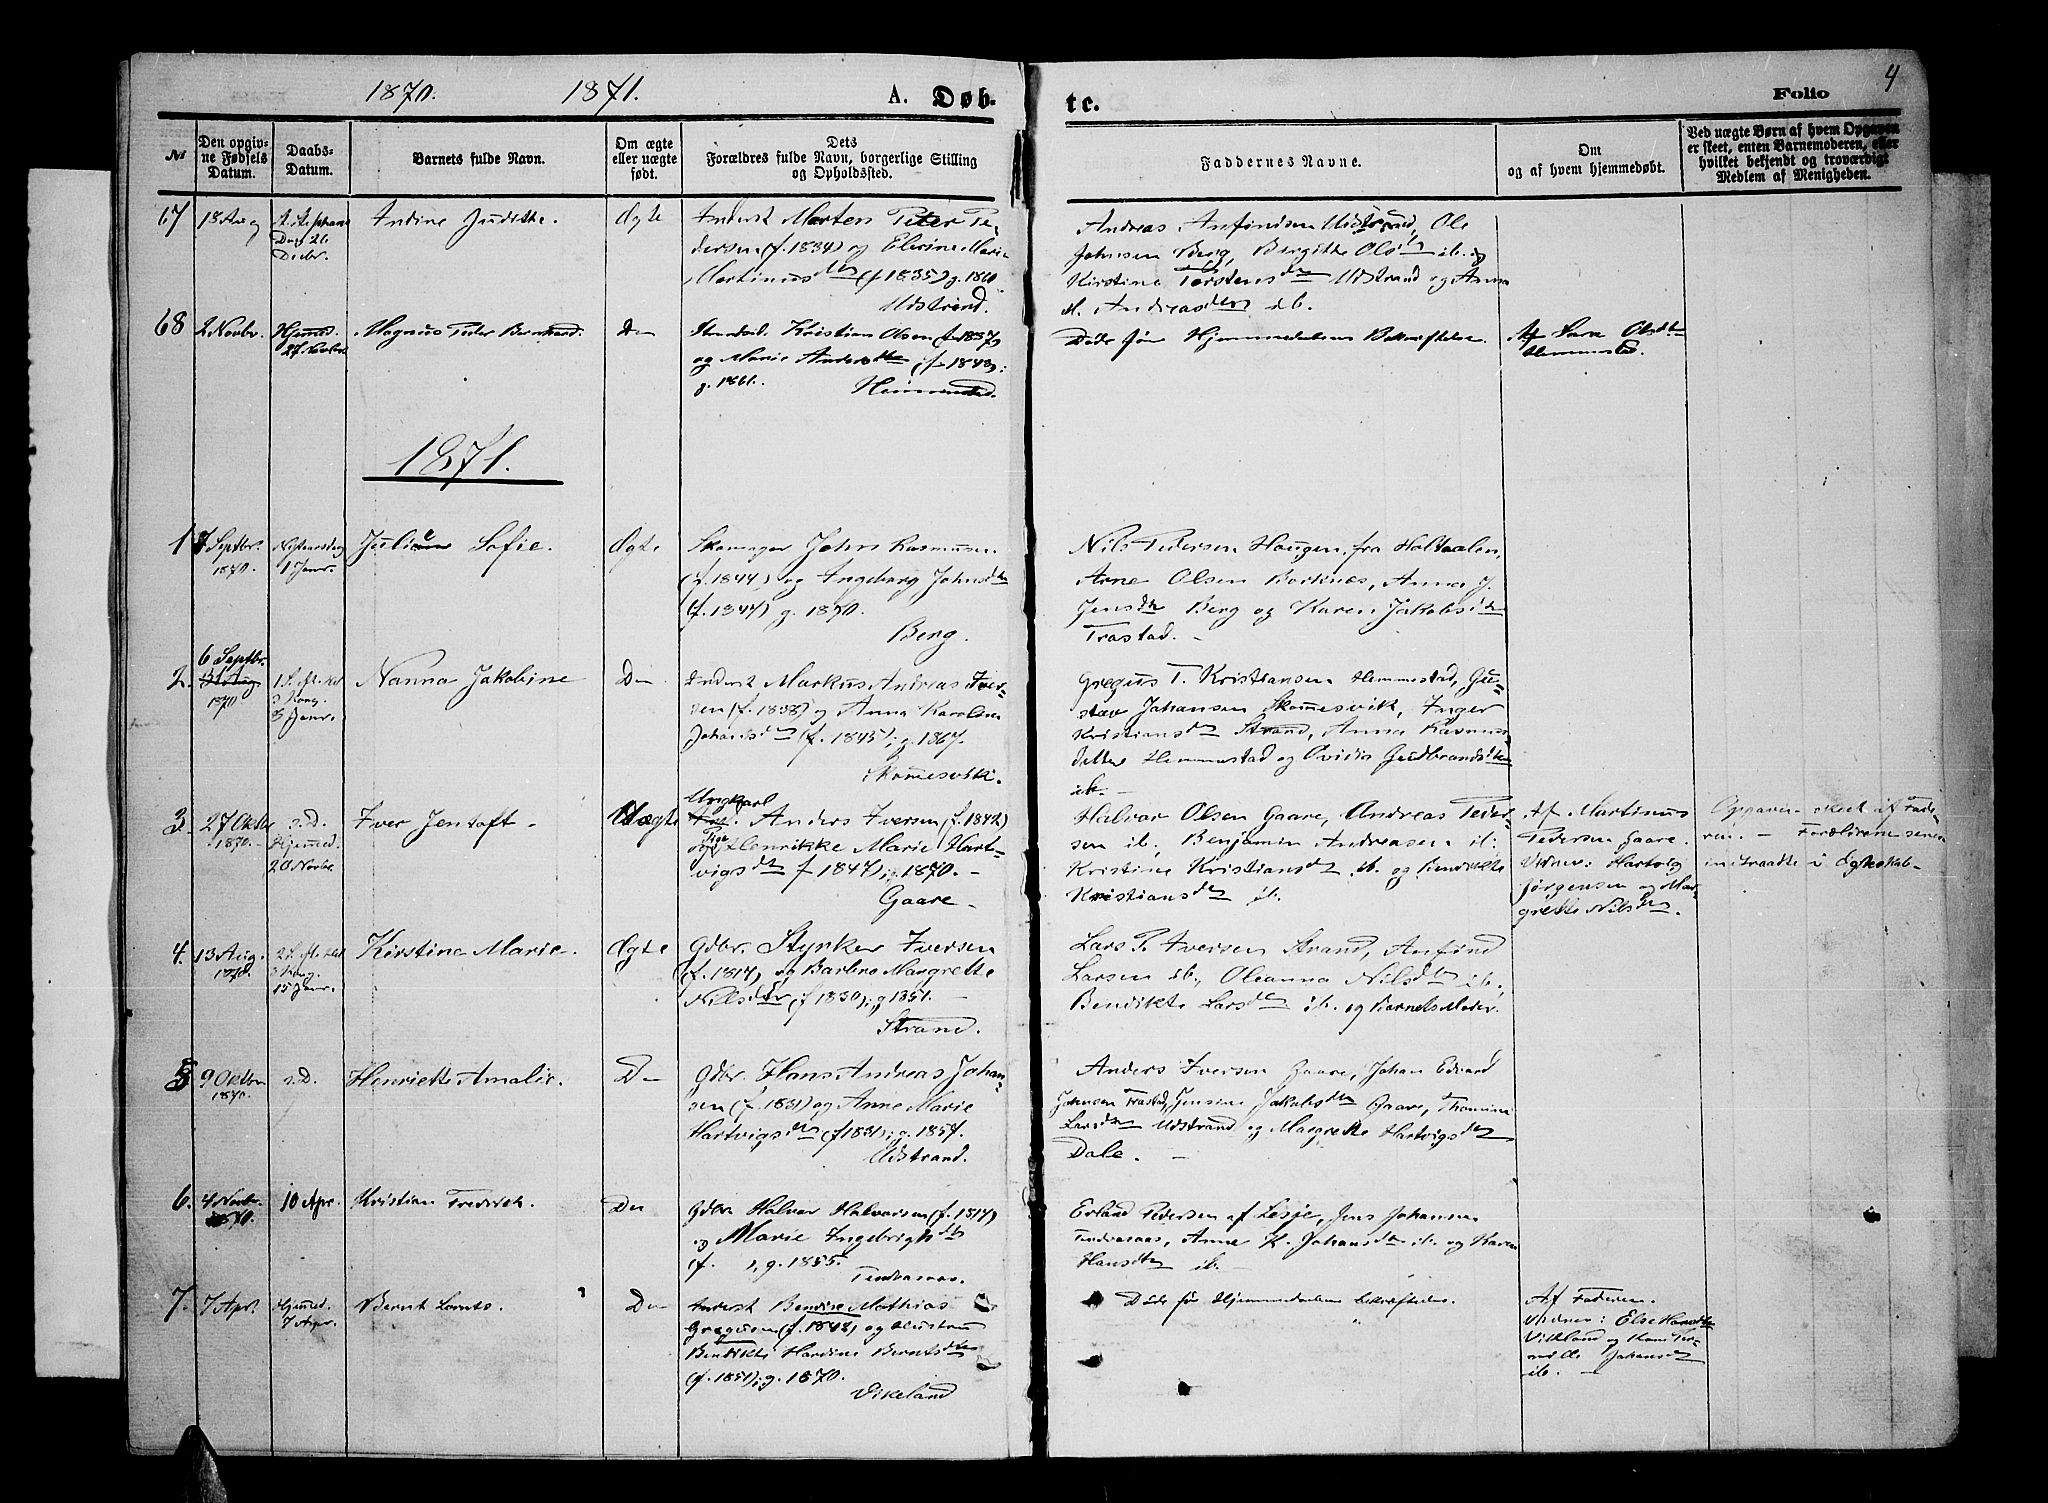 1870. 1871. A. Døb- te. Folio 4
№ Den opgivne Fødsels Datum. Daabs-Datum. Barnets fulde Navn. Om ægte eller uægte født. Dets Forældres fulde Navn, borgerlige Stilling og Opholdssted. Faddernes Navne. Om og af hvem hjemmedøbt. Ved uægte Børn af hvem Opgaven er skeet, enten Barnemoderen, eller hvilket bekjendt og troværdigt Medlem af Menigheden.
67 18 Aug
Dag 26
Decbr.
Andine Judithe.
Ægte
Morten Peter Pe-
dersen (f. 1834) og Elerine Marie
Martinusdtr (f 1835) g. 1860
Udstrand.
Andreas Anfindsen Udstrand, Ole
Johnsen Berg, Bergitte Olsdtr ib. og
Kirstine Torstensdtr Udstrand og Anna
M. Andreasdtr ib.
68 2 Novbr. Hjemmed.
27 Novbr
Magnus Peder Bernhard.
Do
Kristian Olsen (f. 1837)
og Marie Andersdtr (f 1843);
g. 1861. Hemmestad.
Døde før Hjemmedaabens Bekræftelse.
Af Sara Olsdtr
Hemmestad.
1871.
1 7 Septbr.
1870.
Nytaarsdag
1 Janr.
Juliane Sofie.
Ægte
Skomager John Rasmusen
(f. 1844) og Ingeborg Johnsdtr
(f. 1847) g. 1870.
Berg.
Nils Pedersen Haugen fra Holtaalen,
Arne Olsen Borknes, Anna J.
Jensdtr Berg og Karen Jakobsdtr
Trastad. -
2. 6 Septbr.
31 Aug
1870
1 S. eft. Hel
3 Kong.
8 Janr.
Nanna Jakobine
Do
Markus Andreas Iver-
sen (f. 1838) og Anna Karolina
Johansdtr (f. 1845); g. 1867.
Skomesvik.
Gregus T. Kristiansen Hemmestad, Gu-
stav Johansen Skomesvik, Inger
Kristiansdtr Strand, Anna Rasmus-
datter Hemmestad og Ovidia Gudbrandsdtr
ib. -
3. 27 Oktbr
1870. -
s. D.
Hjemmed.
20 Novbr.
Iver Jentoft -
Uægte
Ungkarl
Anders Iversen (f. 1842)
og Pige Henrikke Marie Hart-
vigsdtr f 1847); g. 1870. -
Gaare -
Halvar Olsen Gaare, Andreas Peder-
sen ib., Benjamin Andreasen ib.
Kristine Kristiansdtr ib. og Bendikte
Kristiansdtr ib.
Af Martinus
Pedersen Gaare.
Vidner: Hartvig
Jørgensen og Mar-
grethe Nilsdtr.
Opgaven skeet af Fade-
ren. - Forældrene senere
indtraadte i Egteskab -
4. 13 Aug.
1870.
2 S. eft. Hel
3 Kong.
15 Janr.
Kirstine Marie.
Ægte
Gdbr. Stynker Iversen
(f. 1817) og Barbro Margrethe
Nilsdtr (f 1830); g 1851. -
Strand.
Lars P. Iversen Strand, Anfind
Larsen ib., Oleanna Nilsdtr ib.,
Bendikte Larsdtr ib. og Barnets Moder.
5 9 Oktbr
1870.
s. D.
Henriette Amalie.
Do
Gdbr. Hans Andreas Johan-
sen (f. 1831) og Anne Marie
Hartvigsdtr (f 1831); g. 1857.
Udstrand.
Anders Iversen Gaare, Johan Edvard
Johnsen Trastad, Jensine Jakobsdtr Gaare, Thomine
Larsdtr Udstrand og Margrethe Hartvigsdtr
Dale. -
6. 4 Novbr.
1870.
10 Apr.
Kristian Fredrik.
Do
Gdbr Halvar Halvarsen (f. 1817)
og Marie Ingebrigtsdtr
(f. ), g. 1855.
Tendraaas.
Erland Pedersen af Lesje, Jens Johansen
Tendraaas, Anne K. Johansdtr ib. og Karen
Hansdtr ib.
7. 7 Apr. Hjemmed.
7 Apr.
Bernt Lornts.
Do
Bendix Mathias
Gregusen (f. 1848) og Hustru
Bendikte Hardine Berntsdtr
(f. 1851); g. 1870.
Vikeland
Døde før Hjemmedaabens bekræftelse.
Af Faderen.
Vidner: Else Hansdtr
Vikland og
Johansdtr
ib. -